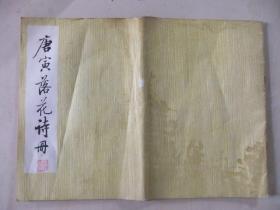 唐寅落花诗册